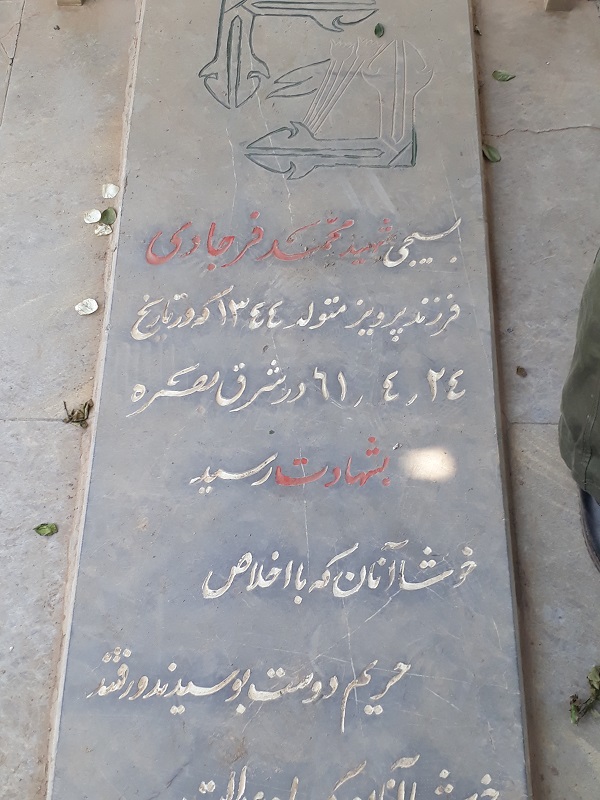 بسیجی شهید محمد فرجادی
فرزند پرویز متولد ۱۳٤٤ که در تاریخ
۲٤ ر ٤ ر ٦۱ در شرق بصره
بشهادت رسید
خوشا آنان که با اخلاص
حریم دوست بوسیدند و رفتند
خوشا آنان که